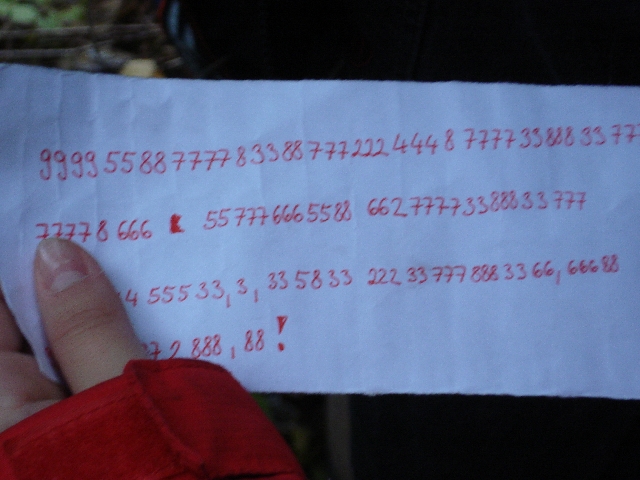 9999 55 88 7777 8 33 88 777 222 444 8 7777 33 888 33 777
7777 8 666 55 777 666 55 88 66 2 7777 33 888 33 777
4 555 33, 3, 33 5 8 33 222 33 777 888 33 66, 666 88
72 888, 88!